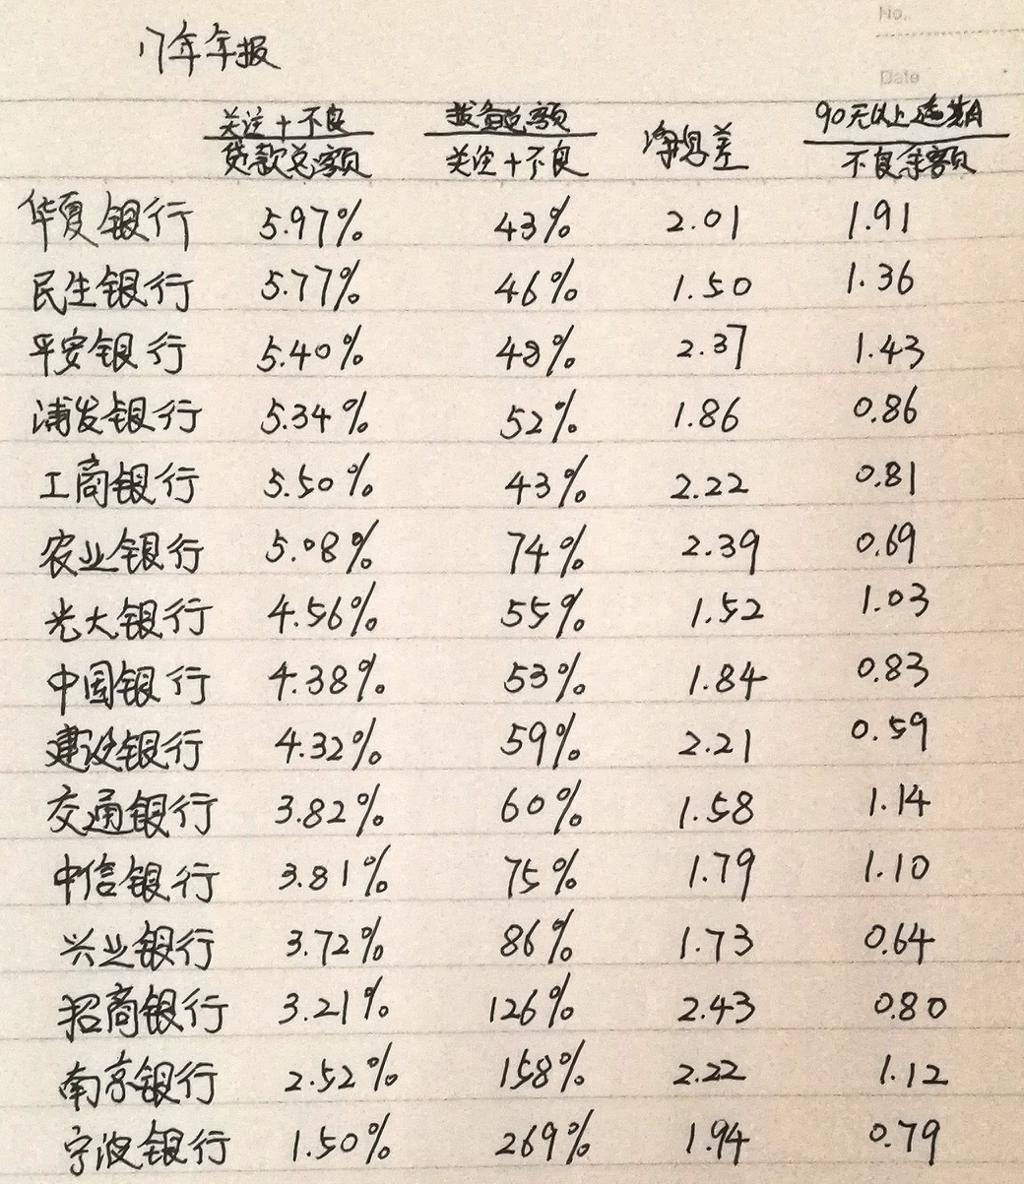 No.
17年年报
Date
关注+不良 拨备总额 净息差 90天以上逾期
贷款总额 关注+不良 不良余额
华夏银行 5.97% 43% 2.01 1.91
民生银行 5.77% 46% 1.50 1.36
平安银行 5.40% 48% 2.37 1.43
浦发银行 5.34% 52% 1.86 0.86
工商银行 5.50% 43% 2.22 0.81
农业银行 5.08% 74% 2.39 0.69
光大银行 4.56% 55% 1.52 1.03
中国银行 4.38% 53% 1.84 0.83
建设银行 4.32% 59% 2.21 0.59
交通银行 3.82% 60% 1.58 1.14
中信银行 3.81% 75% 1.79 1.10
兴业银行 3.72% 86% 1.73 0.64
招商银行 3.21% 126% 2.43 0.80
南京银行 2.52% 158% 2.22 1.12
宁波银行 1.50% 269% 1.94 0.79